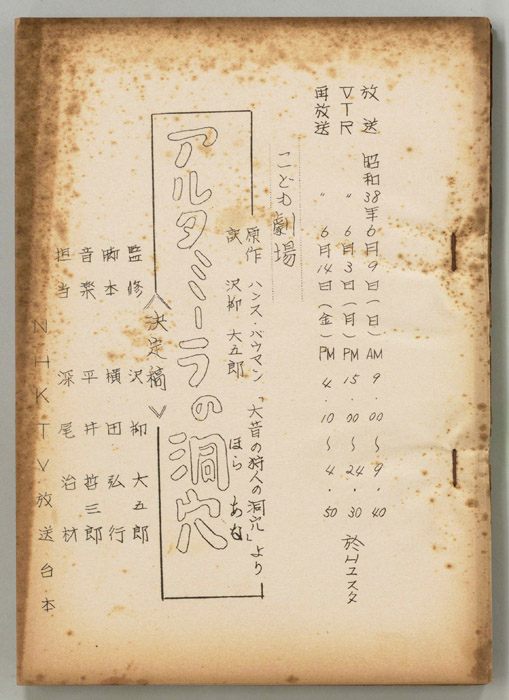 放送 昭和38年6月9日(日) AM 9.00〜9.40
VTR 〃 6月3日(月) PM 15.00〜24.30 於
再放送 〃 6月14日(金) PM 4.10〜4.50
こども劇場
原作 ハンス・バウマン「大昔の狩人の洞穴」より
訳 沢柳 大五郎
ほら あな
アルタミーラの洞穴
《決定稿》
監修 沢柳 大五郎
脚本 横田 弘行
音楽 平井 哲三郎
担当 深尾 治材
NHKTV放送台本